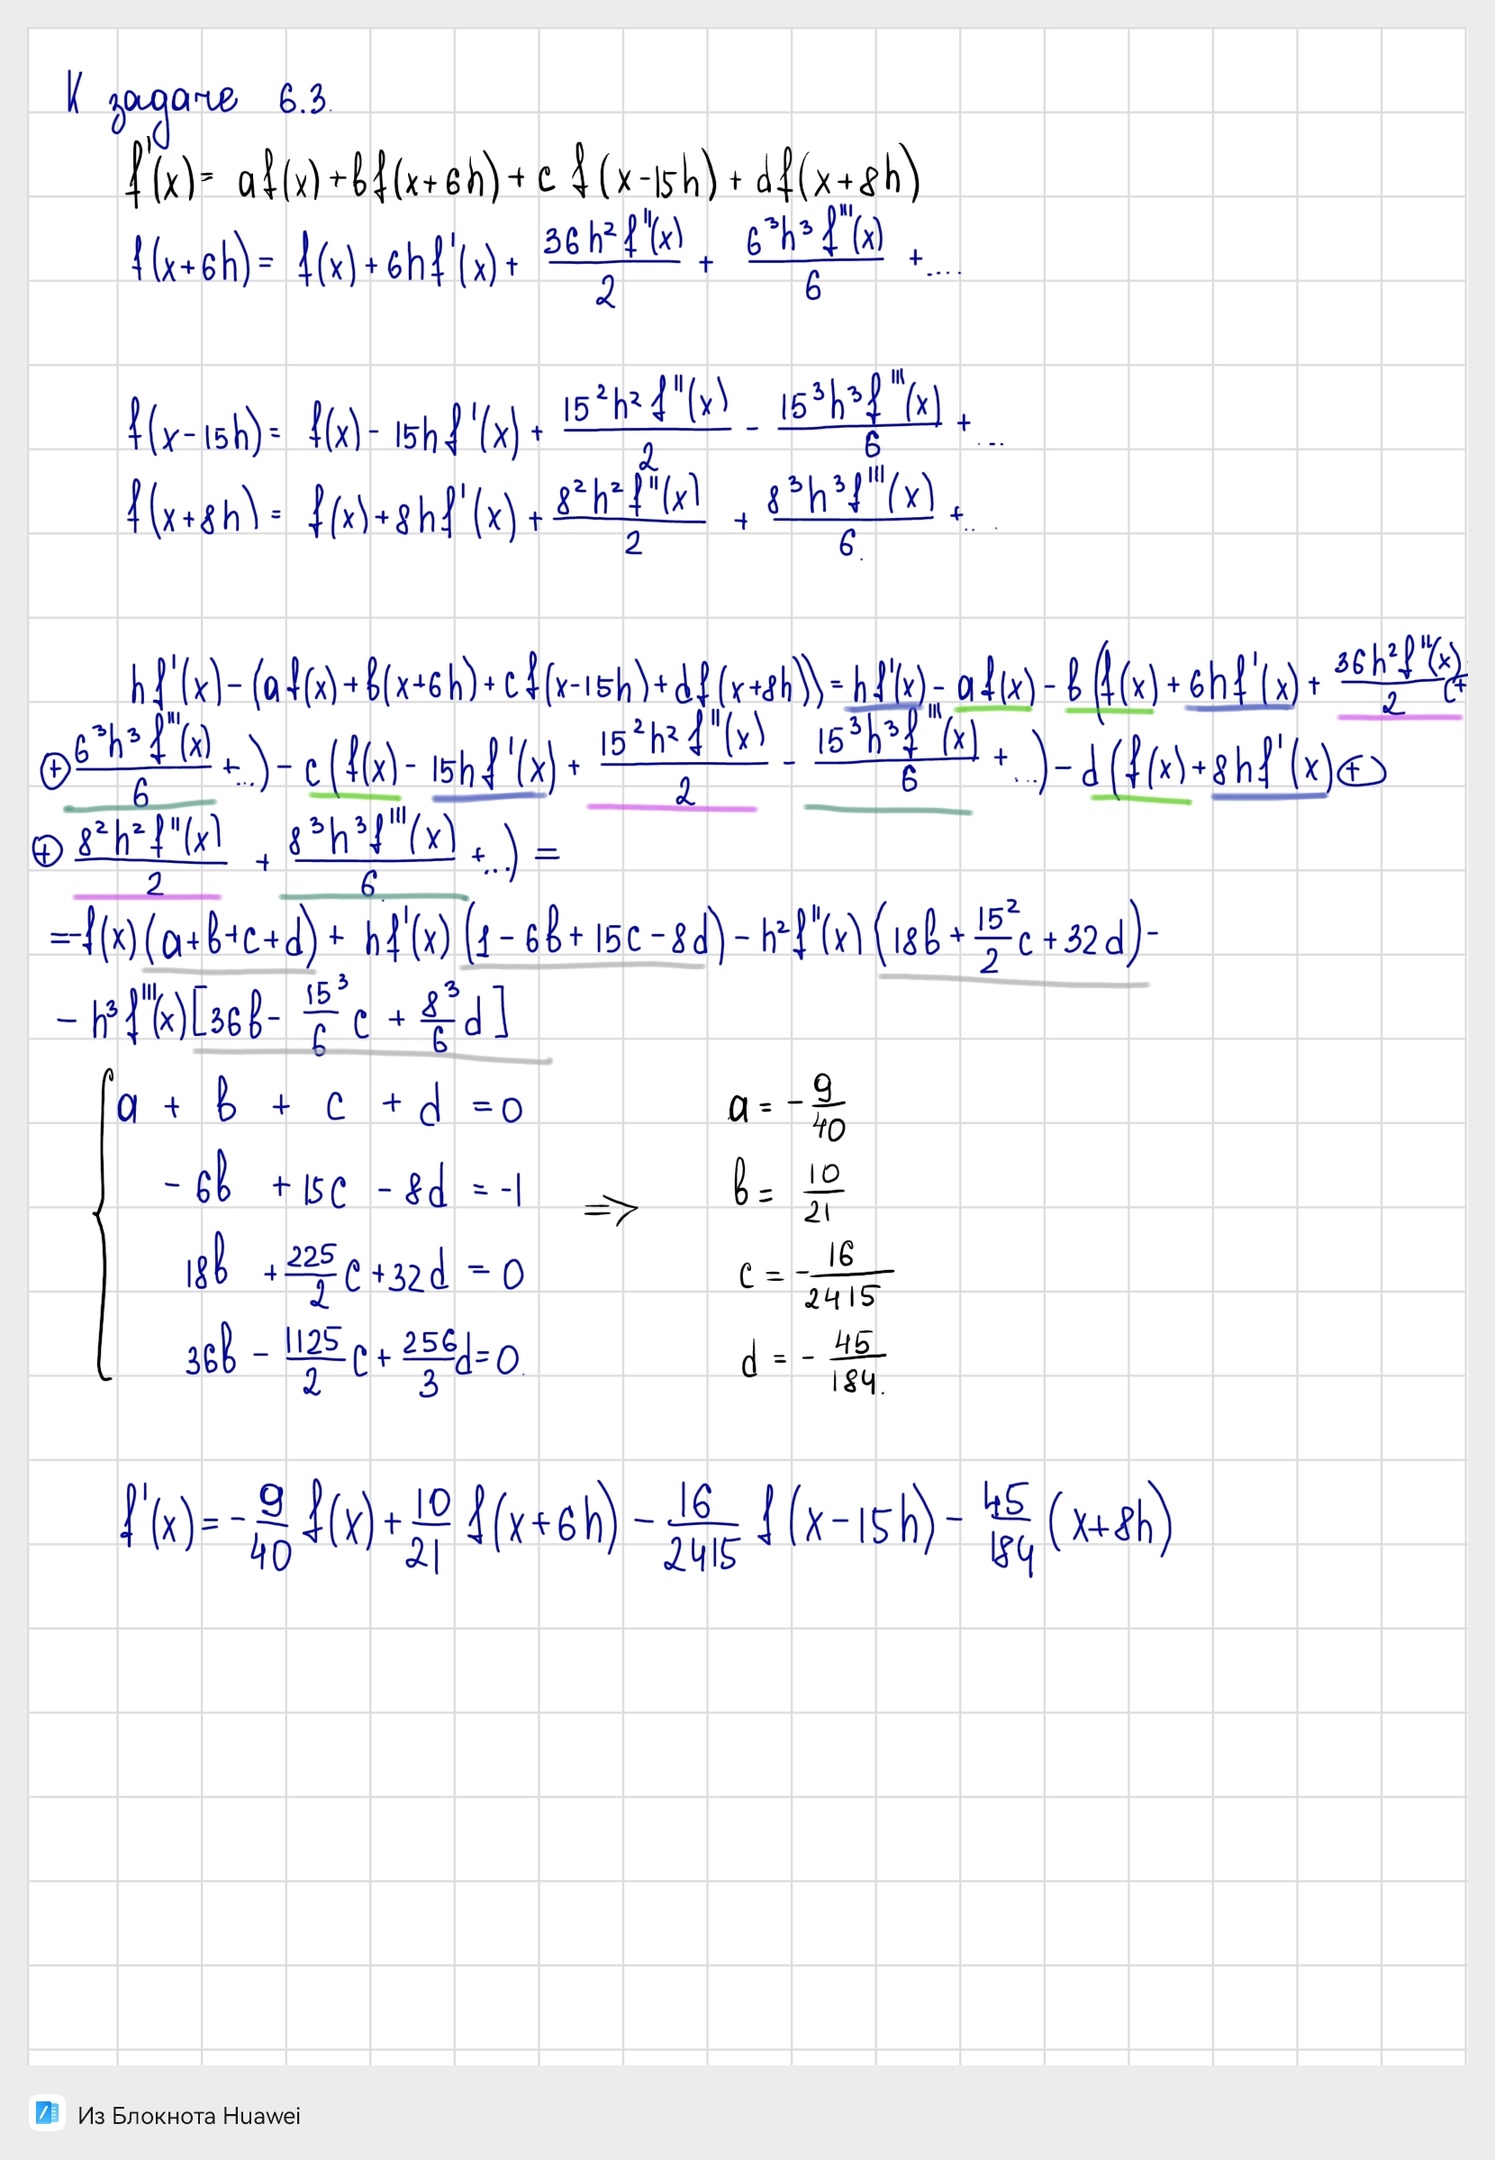 К задаче 6.3.
f'(x)= af(x)+bf(x+6h)+c f(x-15h)+df(x+8h)
f(x+6h)= f(x)+6hf'(x)+ 36h²f''(x)/2 + 6³h³f'''(x)/6 +....
f(x-15h)= f(x)-15hf'(x)+ 15²h²f''(x)/2 - 15³h³f'''(x)/6 +...
f(x+8h)= f(x)+8hf'(x)+ 8²h²f''(x)/2 + 8³h³f'''(x)/6. +...
hf'(x)-(af(x)+b(x+6h)+cf(x-15h)+df(x+8h))=hf'(x)-af(x)-b(f(x)+6hf'(x)+ 36h²f''(x)/2 (+
⊕ 6³h³f'''(x)/6 +...)-c(f(x)-15hf'(x)+ 15²h²f''(x)/2 - 15³h³f'''(x)/6 +...)-d(f(x)+8hf'(x)⊕
⊕ 8²h²f''(x)/2 + 8³h³f'''(x)/6. +...)=
=-f(x)(a+b+c+d)+ hf'(x)(1-6b+15c-8d)-h²f''(x)(18b+ 15²/2 c+32d)-
-h³f'''(x)[36b- 15³/6 c + 8³/6 d]
{ a + b + c + d =0 a=- 9/40
-6b +15c -8d =-1 => b= 10/21
18b + 225/2 c+32d =0 c=- 16/2415
36b - 1125/2 c+ 256/3 d=0. d =- 45/184.
f'(x)=- 9/40 f(x)+ 10/21 f(x+6h)- 16/2415 f(x-15h)- 45/184 (x+8h)
Из Блокнота Huawei